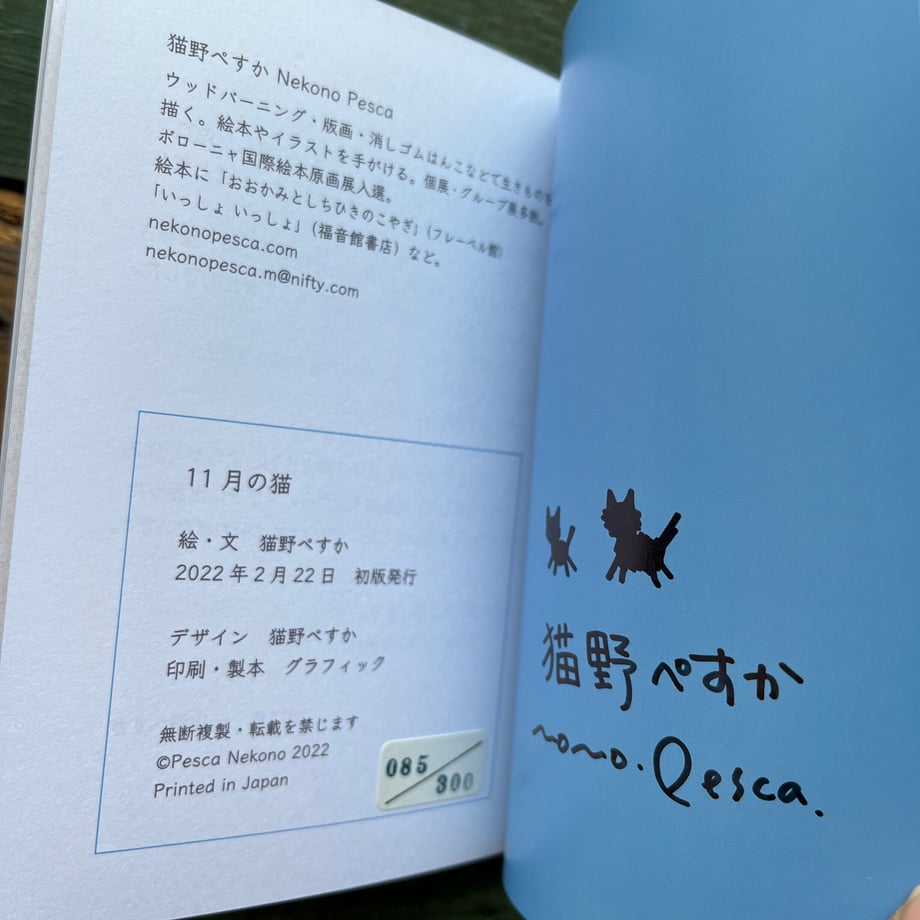 猫野ぺすか Nekono Pesca
ウッドバーニング・版画・消しゴムはんこなどで生きものを
描く。絵本やイラストを手がける。個展・グループ展多数。
ボローニャ国際絵本原画展入選。
絵本に「おおかみとしちひきのこやぎ」(フレーベル館)
「いっしょ いっしょ」(福音館書店)など。
nekonopesca.com
nekonopesca.m@nifty.com
11月の猫
絵・文 猫野ぺすか
2022年2月22日 初版発行
デザイン 猫野ぺすか
印刷・製本 グラフィック
無断複製・転載を禁じます
©Pesca Nekono 2022
Printed in Japan
085/300
猫野ぺすか
Pesca.